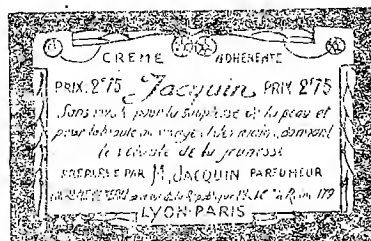 CREME ADHERENTE
PRIX. 2F75 Jacquin PRIX 2F75
Sans rival pour la souplesse de la peau et
pour la beauté du visage et des mains, donnant
le velouté de la jeunesse
PREPAREE PAR M. JACQUIN PARFUMEUR
de la République 179
LYON-PARIS